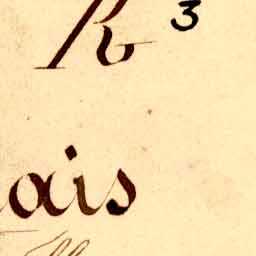 R 3
ais